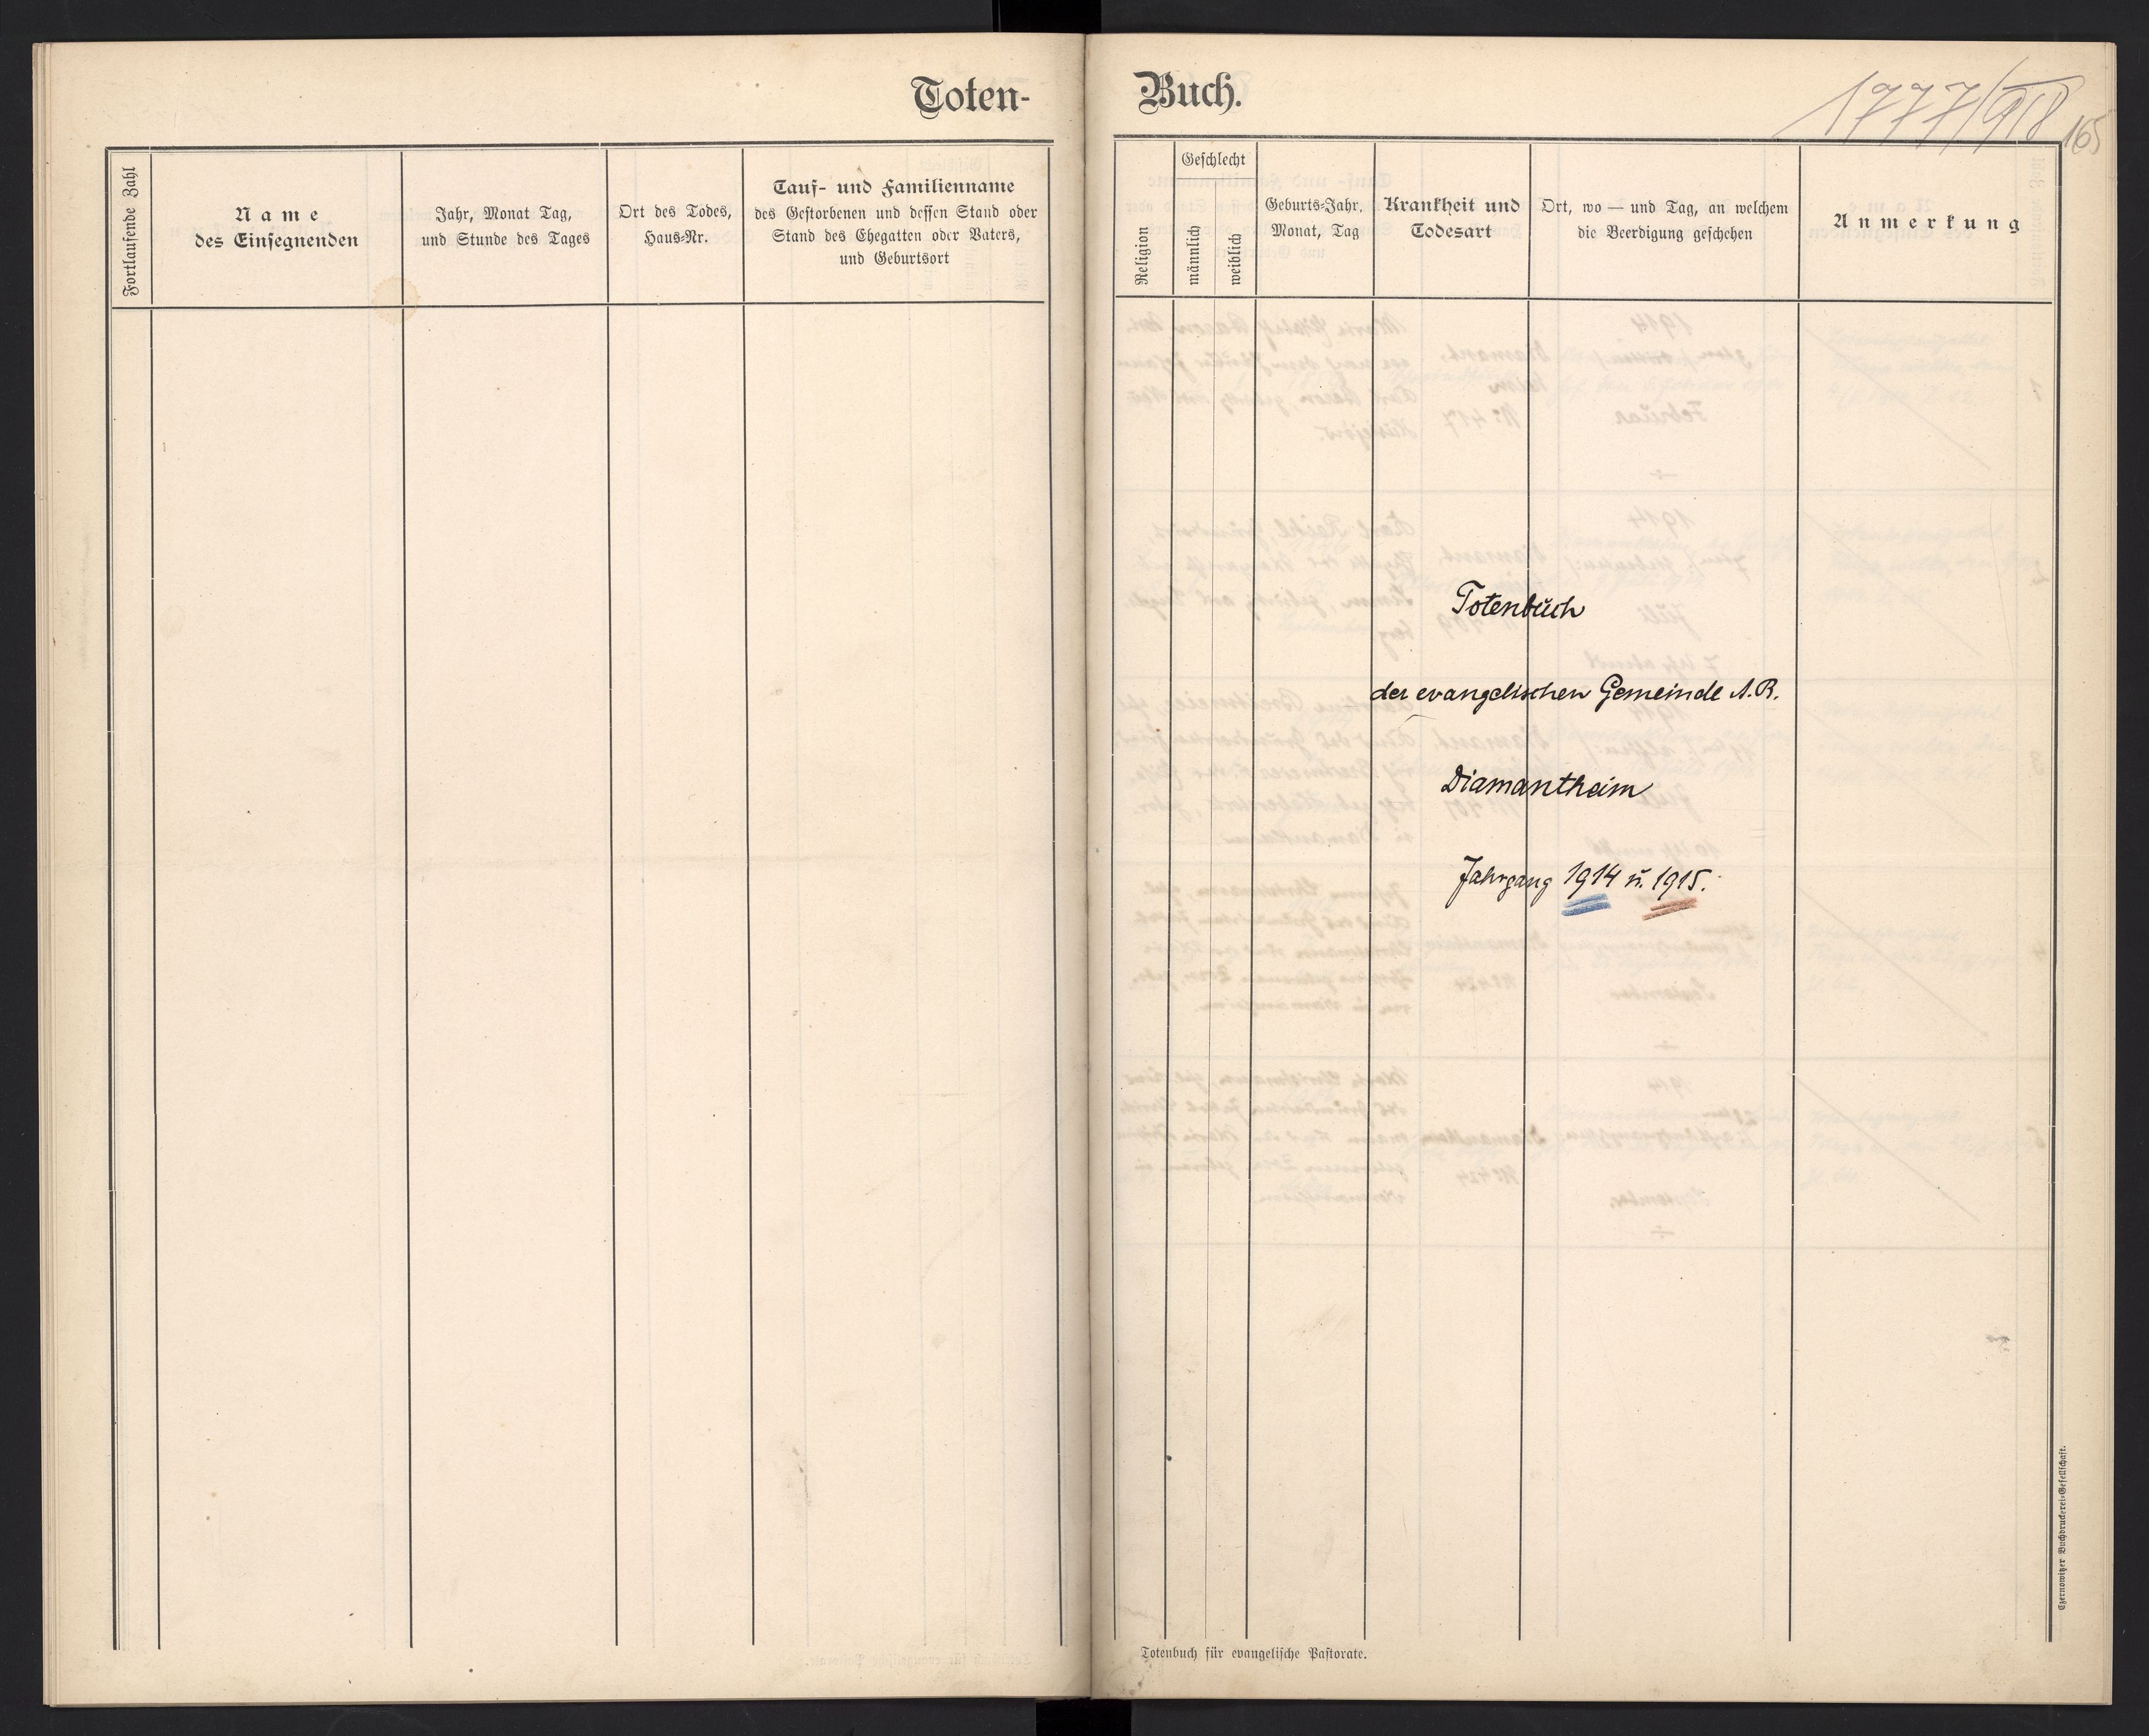 Toten-
Fortlaufende Zahl
Name
des Einsegnenden
Jahr, Monat Tag,
und Stunde des Tages
Ort des Todes,
Haus-Nr.
Tauf- und Familienname
des Gestorbenen und dessen Stand oder
Stand des Ehegatten oder Vaters,
und Geburtsort
Buch.
165
Religion
Geschlecht
männlich
weiblich
Geburts-Jahr,
Monat, Tag
Krankheit und
Todesart
Ort, wo — und Tag, an welchem
die Beerdigung geschehen
Anmerkung
Totenbuch
der evangelischen Gemeinde A.B.
Diamantheim
Jahrgang 1914 u. 1915.
Totenbuch für evangelische Pastorate.
Czernowitzer Buchdruckerei-Gesellschaft.